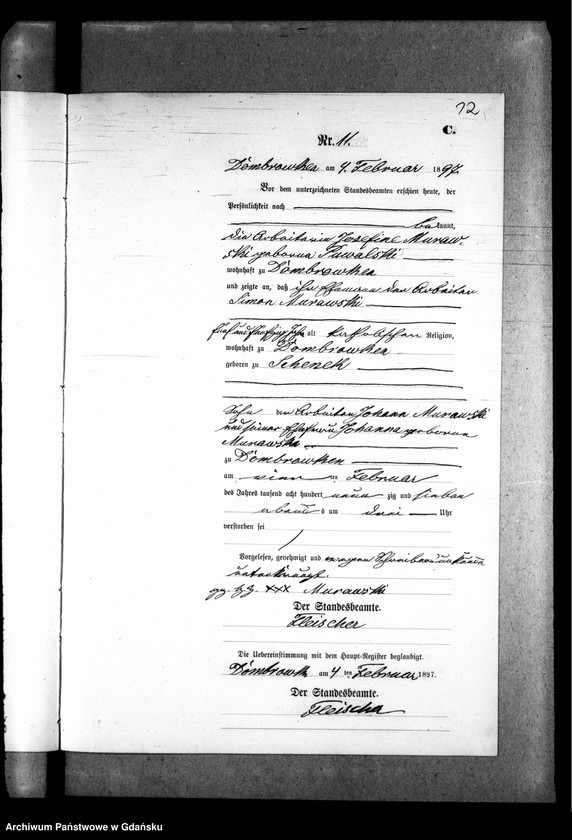 12
C.
Nr. 11.
Dombrowken am 4. Februar 1897.
Vor dem unterzeichneten Standesbeamten erschien heute, der
Persönlichkeit nach
bekannt,
die Arbeiterin Josefine Muraw-
ski geborene
wohnhaft zu Dombrowken
und zeigte an, daß ihr Ehemann der Arbeiter
Simon Murawski
fünf und fünfzig Jahr alt katholischer Religion,
wohnhaft zu Dombrowken
geboren zu
Sohn der Arbeiter Johann Murawski
und seiner Ehefrau Johanna geborene
Murawski
zu Dombrowken
am vier ten Februar
des Jahres tausend acht hundert neun zig und sieben
um drei Uhr
verstorben sei
Vorgelesen, genehmigt und wegen Schreibensunkunde
unterkreuzt.
gez. Hz. XXX Murawski
Der Standesbeamte.
Fleischer
Die Uebereinstimmung mit dem Haupt-Register beglaubigt.
Dombrowken am 4 ten Februar 1897.
Der Standesbeamte.
Fleischer
Archiwum Państwowe w Gdańsku